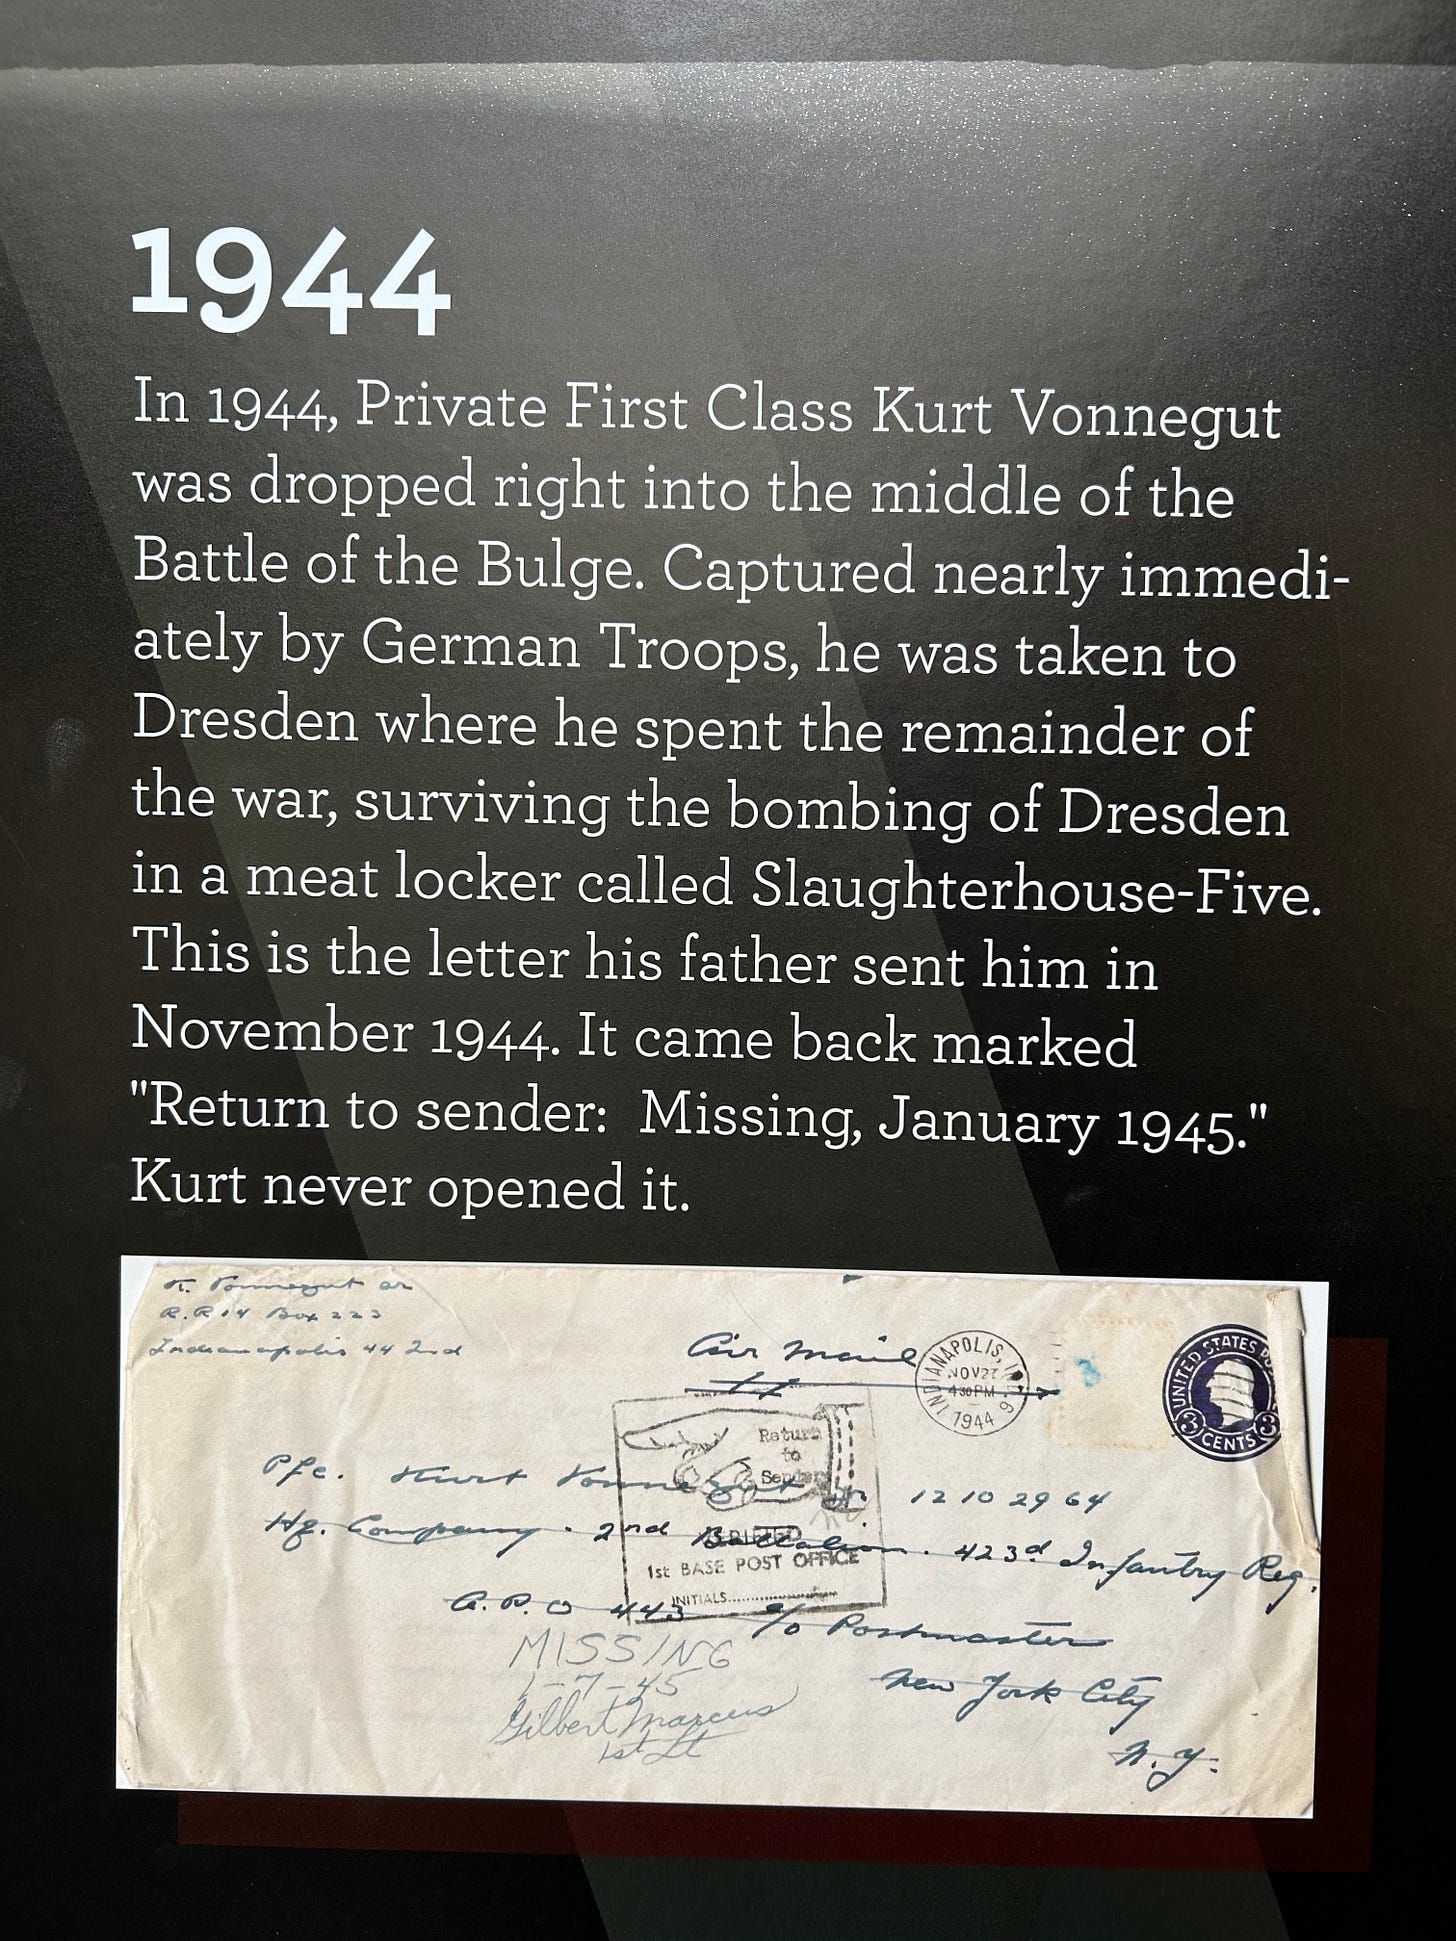 1944
In 1944, Private First Class Kurt Vonnegut
was dropped right into the middle of the
Battle of the Bulge. Captured nearly immedi-
ately by German Troops, he was taken to
Dresden where he spent the remainder of
the war, surviving the bombing of Dresden
in a meat locker called Slaughterhouse-Five.
This is the letter his father sent him in
November 1944. It came back marked
"Return to sender:  Missing, January 1945."
Kurt never opened it.
K. Vonnegut Sr
R.R 14 Box 223
Indianapolis 44 Ind
Air Mail
INDIANAPOLIS, IND.
NOV 27
4 30 PM
1944
UNITED STATES
3 CENTS 3
Return
to
Sender
Pfc. Kurt Vonnegut Jr. 12 10 29 64
Hq. Company - 2nd Battalion - 423d Infantry Reg.
1st BASE POST OFFICE
INITIALS
A.P.O 443 c/o Postmaster
New York City
N.Y.
MISSING
1-7-45
Gilbert Marcus
1st Lt